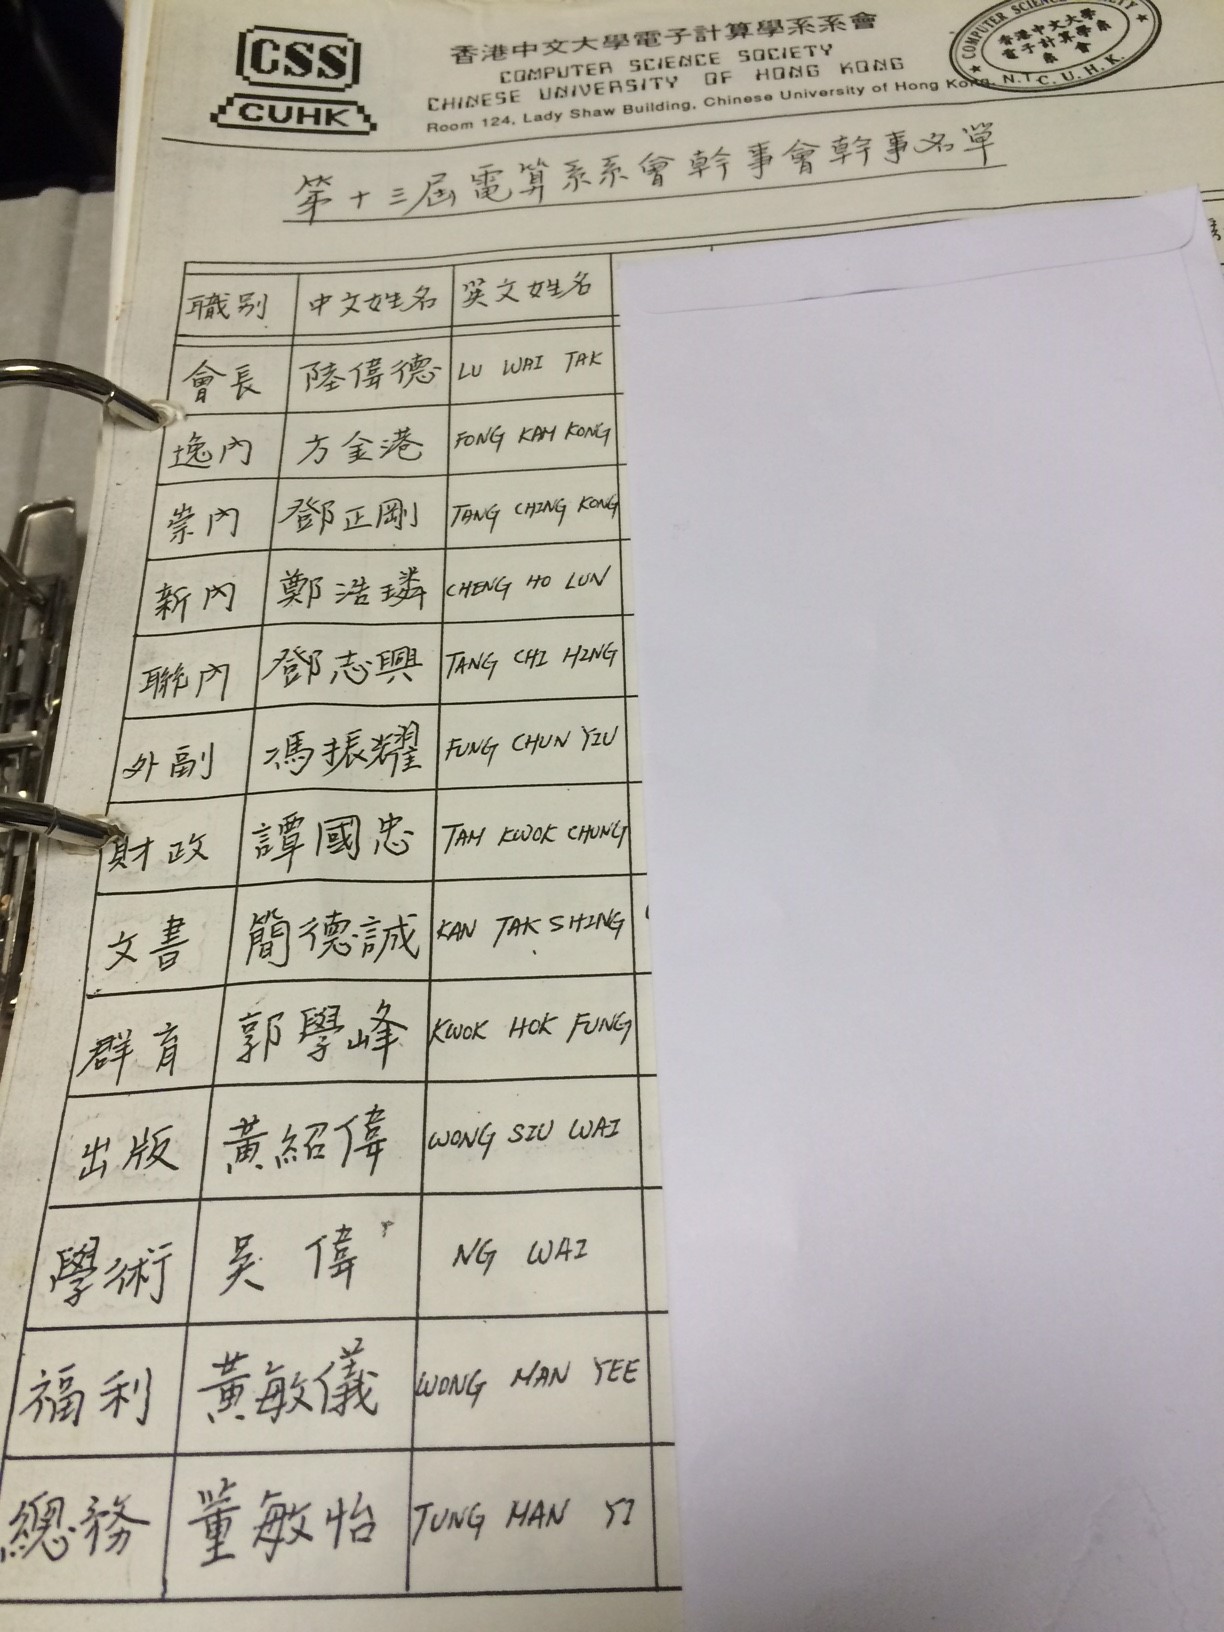 CSS
CUHK
香港中文大學電子計算學系系會
COMPUTER SCIENCE SOCIETY
CHINESE UNIVERSITY OF HONG KONG
Room 124, Lady Shaw Building, Chinese University of Hong Kong, N.T.
COMPUTER SCIENCE SOCIETY
香港中文大學
電子計算學系
系會
C.U.H.K.
第十三屆電算系系會幹事會幹事名單
職别 中文姓名 英文姓名
會長 陸偉德 LU WAI TAK
逸内 方金港 FONG KAM KONG
崇内 鄧正剛 TANG CHING KONG
新内 鄭浩璘 CHENG HO LUN
聯内 鄧志興 TANG CHI HING
外副 馮振耀 FUNG CHUN YIU
財政 譚國忠 TAM KWOK CHUNG
文書 簡德誠 KAN TAK SHING
群育 郭學峰 KWOK HOK FUNG
出版 黃紹偉 WONG SIU WAI
學術 吳偉 NG WAI
福利 黃敏儀 WONG MAN YEE
總務 董敏怡 TUNG MAN YI